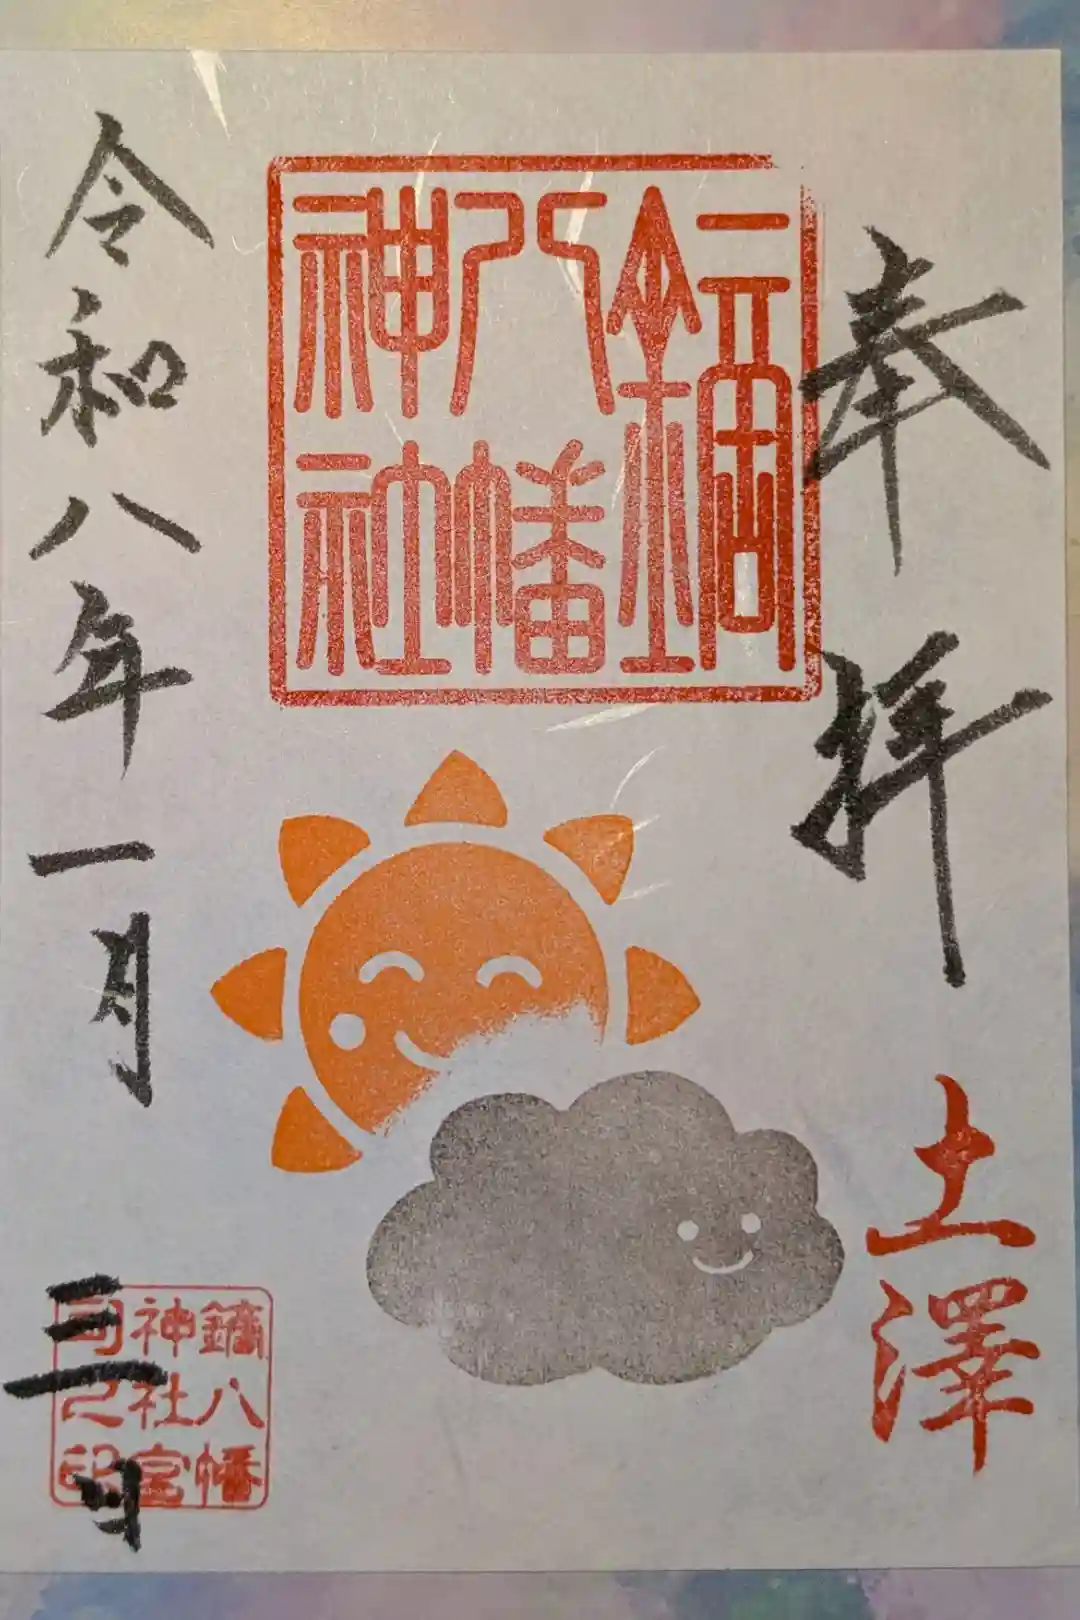 奉拝
土澤
鏑八幡
神社
令和八年一月三日
鏑八幡
神社宮
司之印